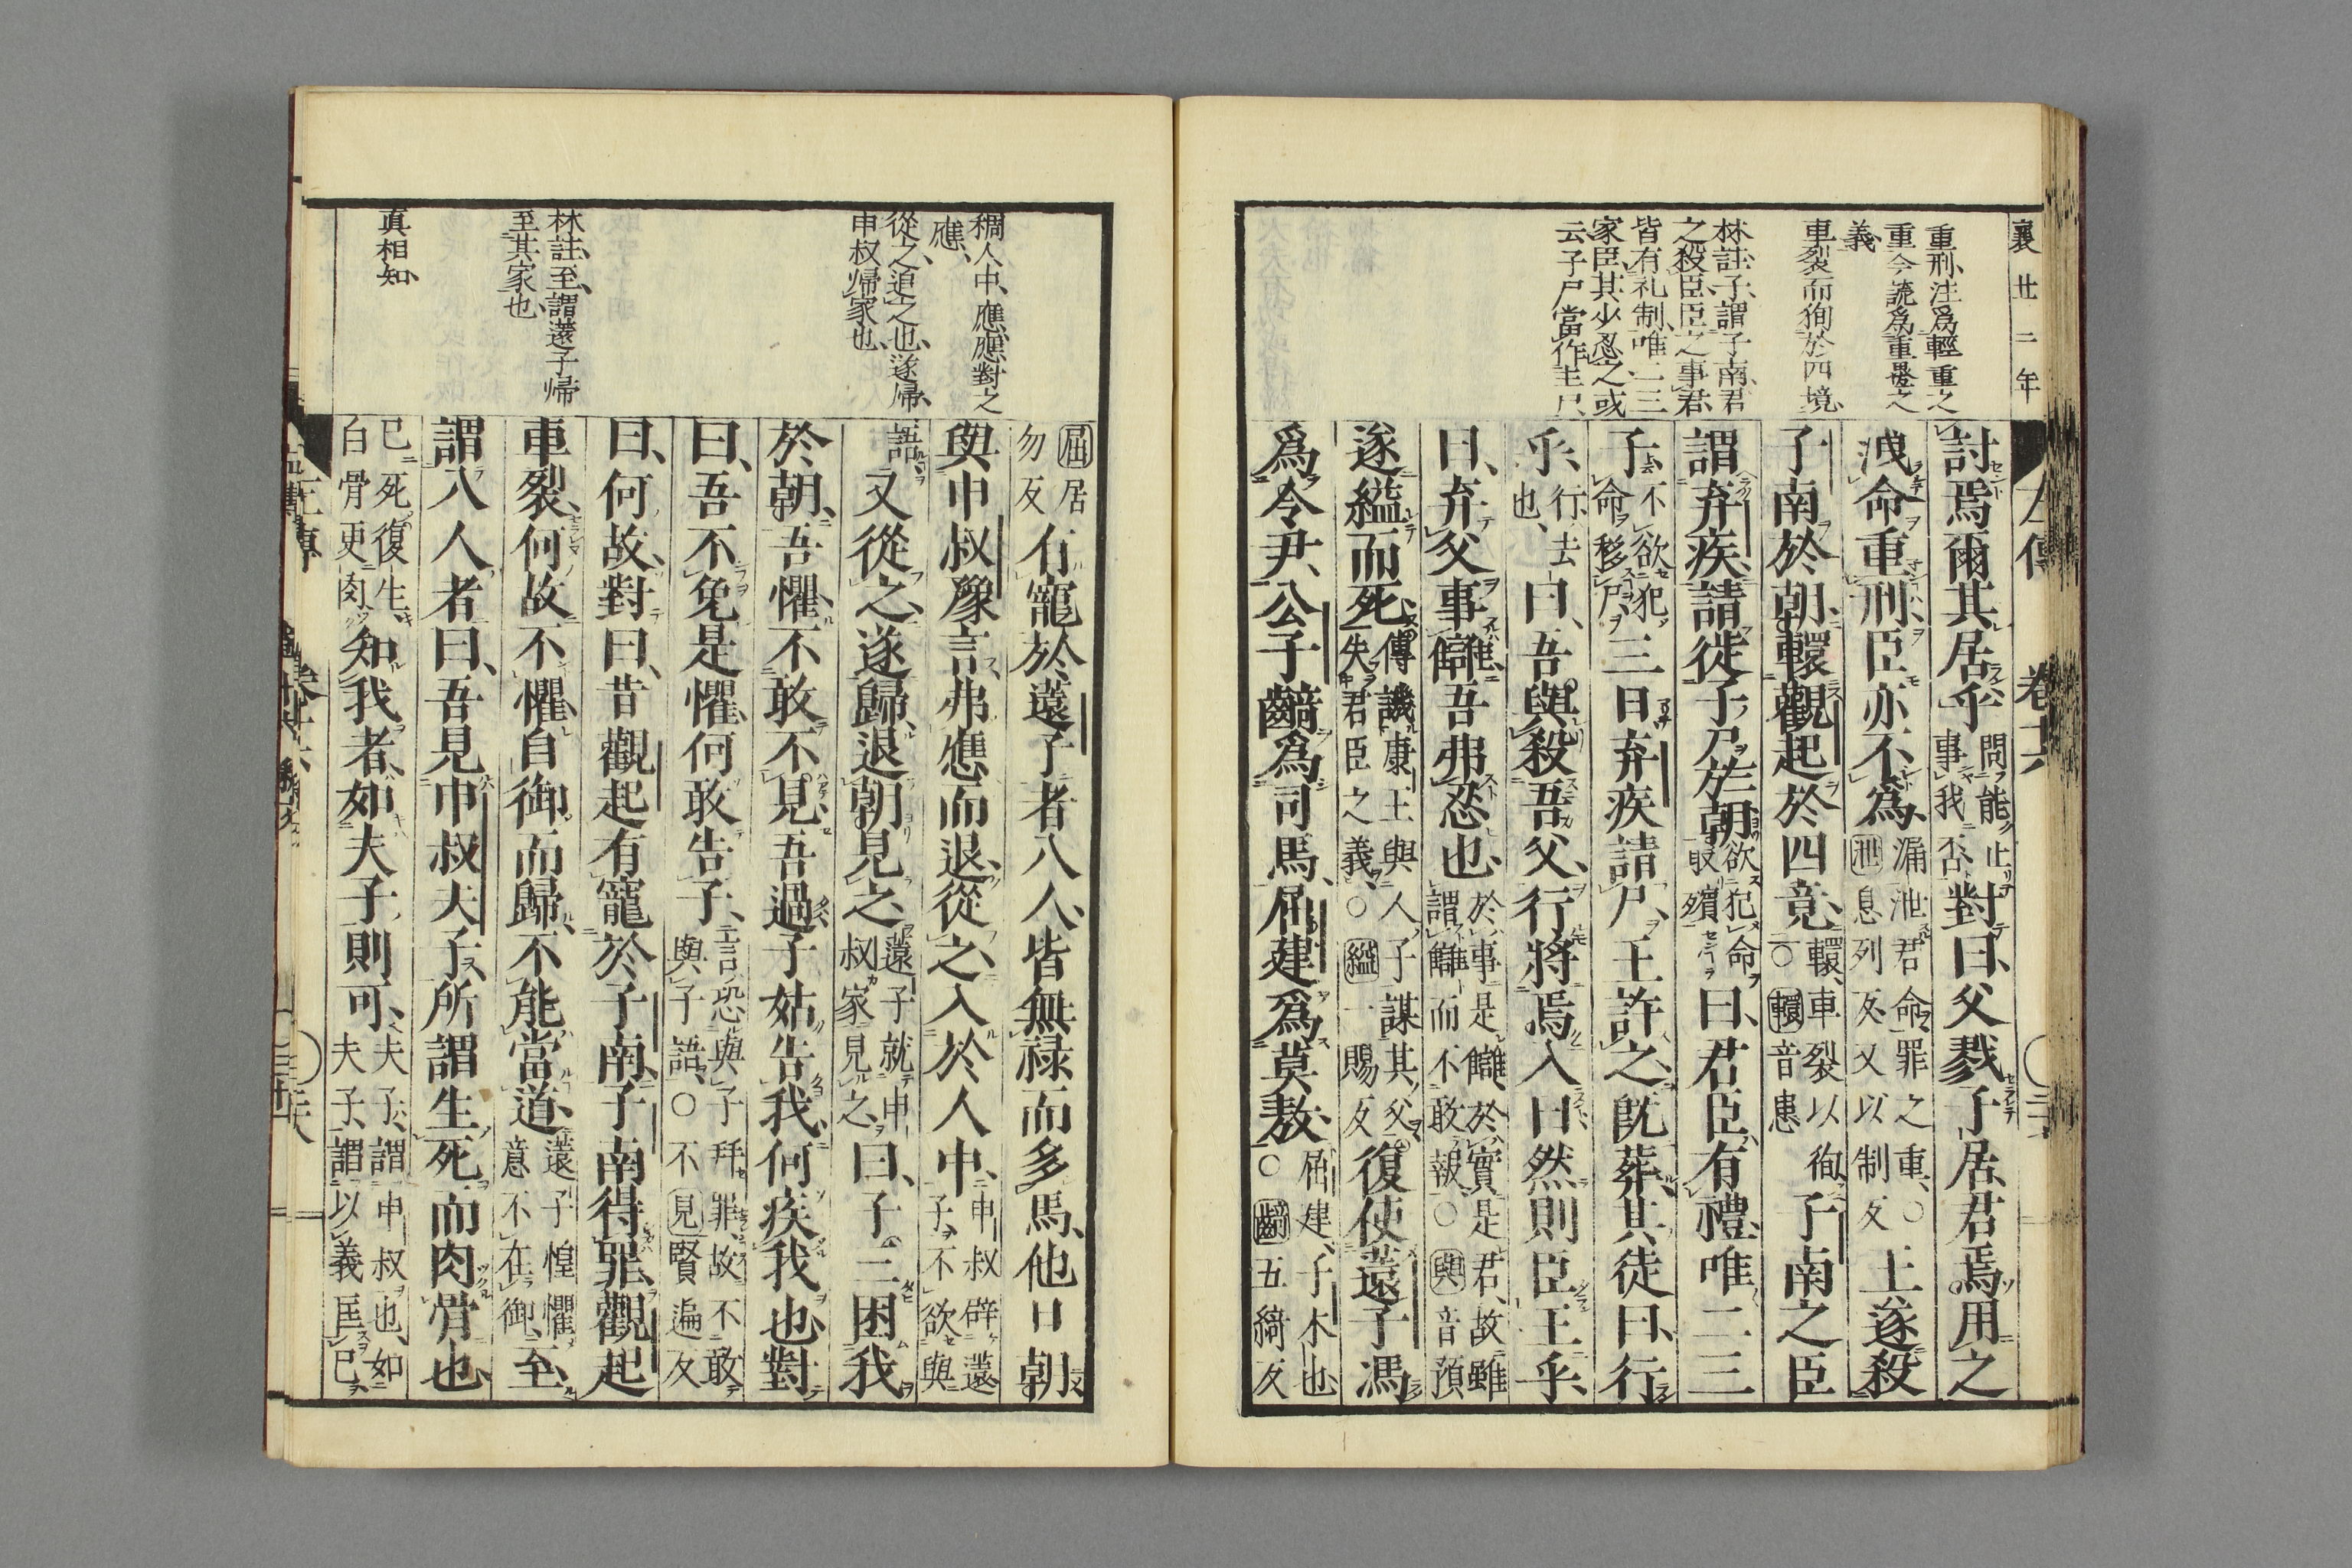 襄廿二年
重刑、注爲輕重之
重今読爲重疊之
義
車裂而徇於四境、
林註、子謂子南、君
之殺臣、臣之事君、
皆有礼制、唯二三
家臣、其少忍之、或
云、子尸當作主尸、
左傳 卷十六
討焉、爾其居乎、問能止事我否、對曰、父戮子居、君焉用之
洩命重刑、臣亦不爲、漏泄君命、罪之重、○泄息列反、又以制反、王遂殺
子南於朝、轘觀起於四竟、轘、車裂以徇、○轘音患 子南之臣
謂弃疾、請徙子尸於朝、欲犯命取殯、曰、君臣有禮、唯二三
子、不欲犯命移尸、三日、弃疾請尸、王許之、既葬、其徒曰、行
乎、行、去也、曰、吾與殺吾父、行將焉入、曰、然則臣王乎、
曰、弃父事讎、吾弗忍也、於事是讎、於實是君、故雖謂讎而不敢報、○與音預
遂縊而死、傳譏康王與人子謀其父、失君臣之義、○縊一賜反、復使薳子馮
爲令尹、公子齮爲司馬、屈建爲莫敖、屈建、子木也、○齮五綺反
稠人中、應、應對之
應、
從之、追之也、遂歸、
申叔帰家也、
林註、至、謂薳子帰
至其家也、
眞相知、
屈居勿反 有寵於薳子者八人、皆無禄而多馬、他日朝
與申叔豫言、弗應而退、從之、入於人中、申叔辟薳子、不欲與
語、又從之、遂歸、退朝見之、薳子就申叔家見之、曰、子三困我
於朝、吾懼、不敢不見、吾過、子姑告我、何疾我也、對
曰、吾不免是懼、何敢告子、言恐與子并罪、故不敢與子語、○不見賢遍反
曰、何故、對曰、昔觀起有寵於子南、子南得罪、觀起
車裂、何故不懼、自御而歸、不能當道、薳子惶懼、意不在御、至、
謂八人者曰、吾見申叔、夫子所謂生死而肉骨也、
已死復生、白骨更肉、知我者、如夫子則可、夫子、謂申叔也、如夫子、謂以義匡已、